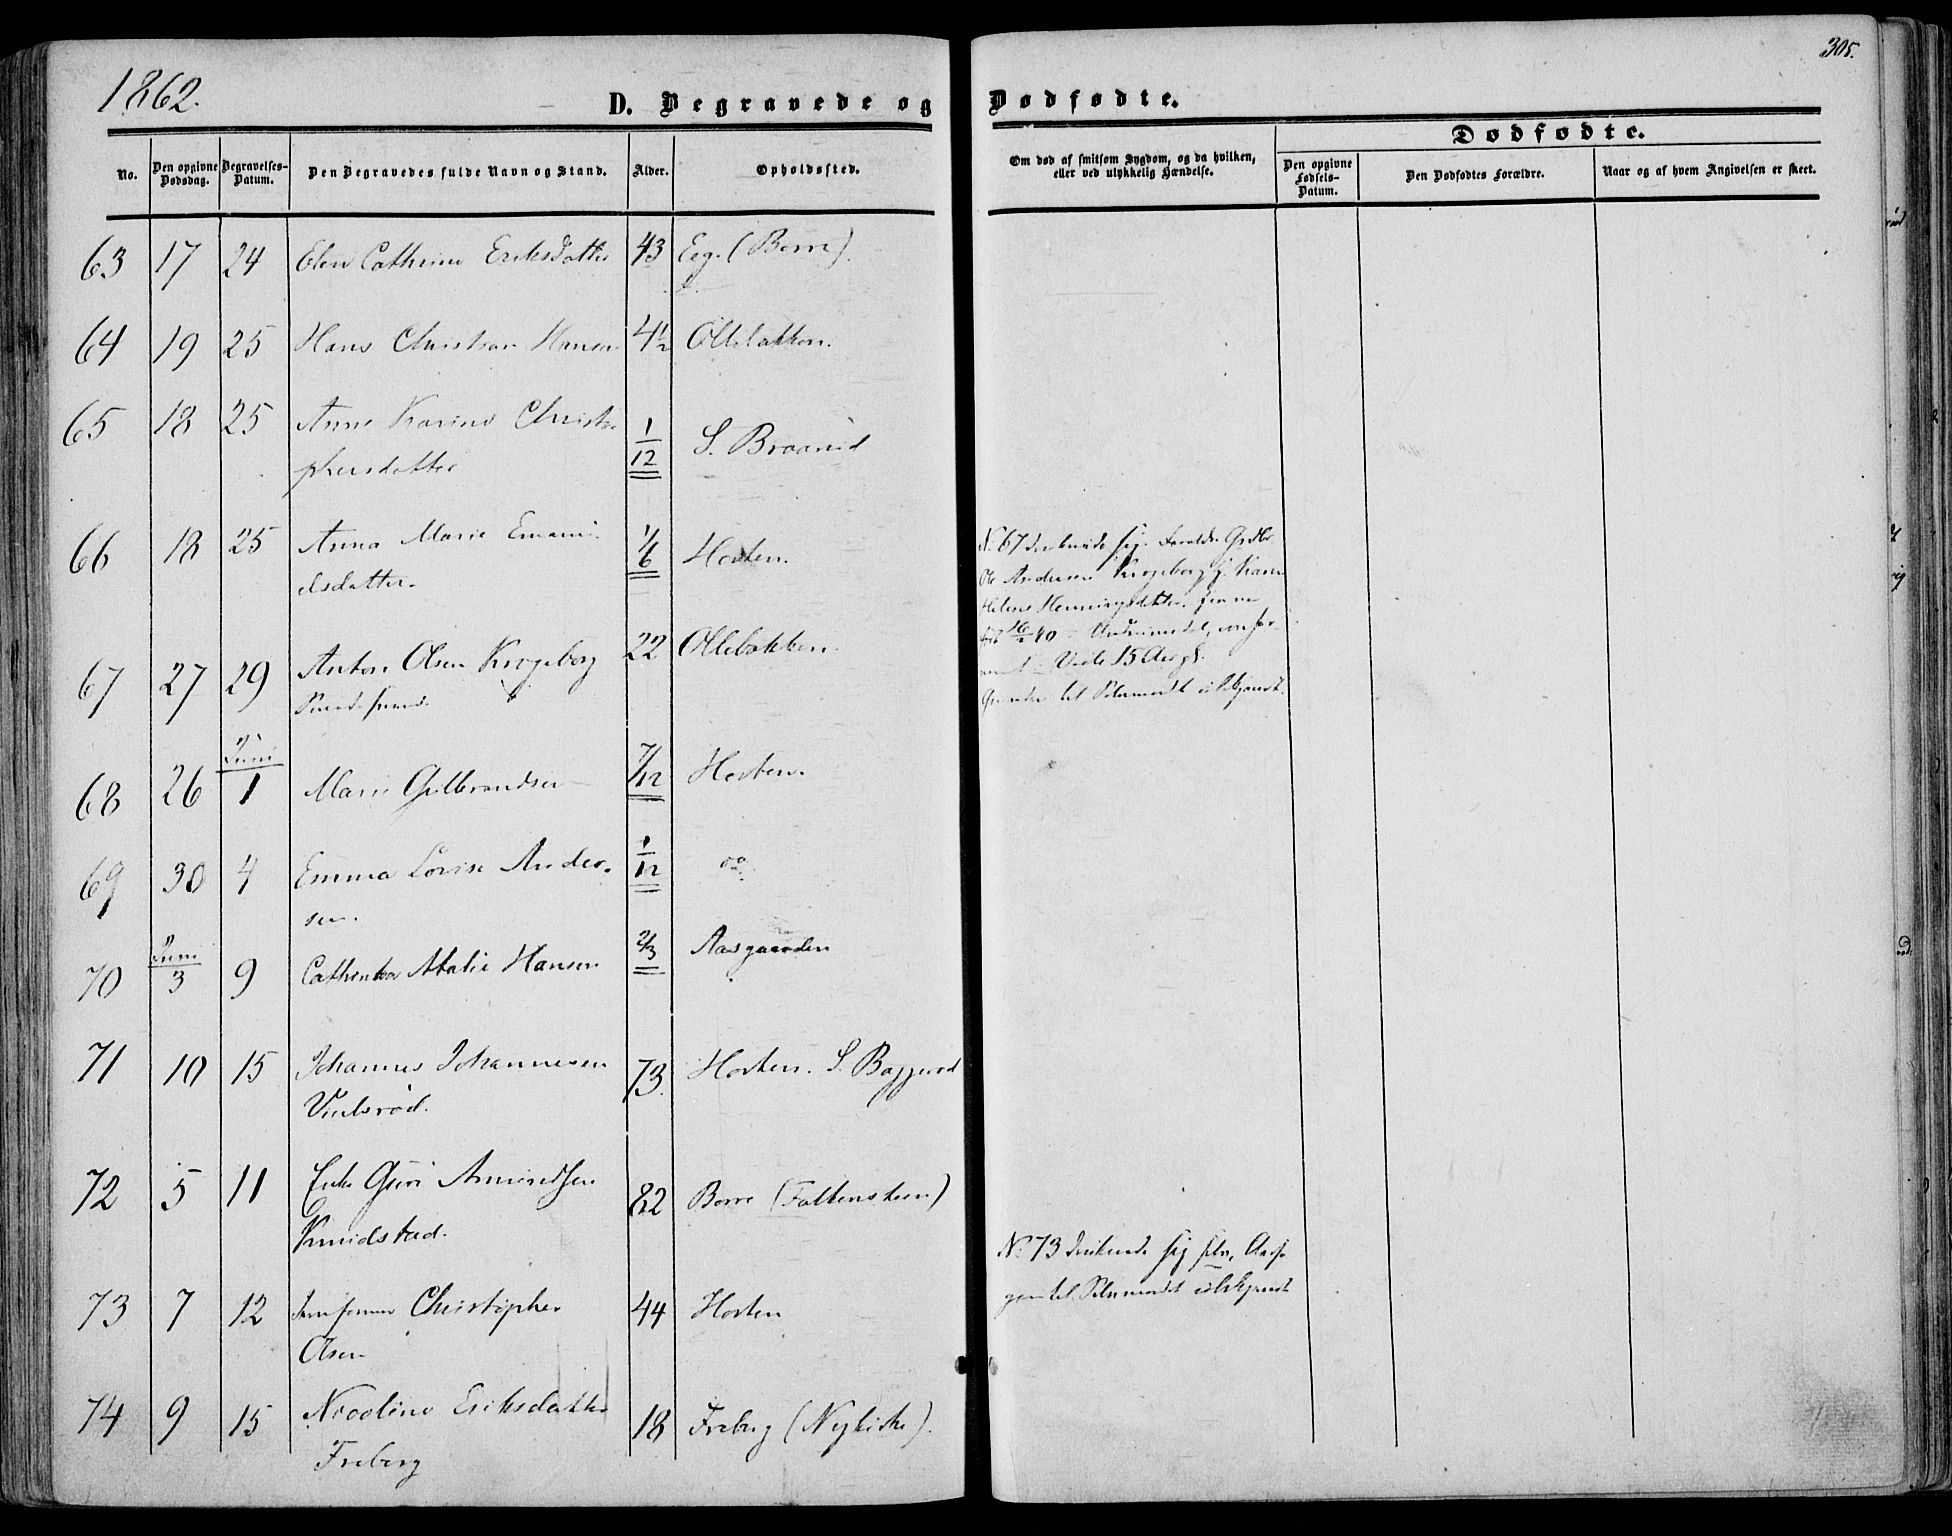 1862.
D. Begravede og
Dødfødte.
305.
No.
Den opgivne Dødsdag.
Begravelses-Datum.
Den Begravedes fulde Navn og Stand.
Alder.
Opholdssted.
Om død af smitsom Sygdom, og da hvilken,
eller ved ulykkelig Hændelse.
Dødfødte.
Den opgivne Fødsels-Datum.
Den Dødfødtes Forældre.
Naar og af hvem Angivelsen er skeet.
63 17 24 Elen Cathrine Eriksdatter 43 Eeg. (Borre).
64 19 25 Hans Christian Hansen 4½ Ollebakken.
65 18 25 Anne Karine Christo
phersdatter 1/12 S. Braarud
66 18 25 Anna Marie Emanu-
elsdatter. 1/6 Horten.
67 27 29 Anton Olsen Krogeborg 22 Ollebakken.
68 26 Juni 1 Marie Gulbrandsen 7/12 Horten.
69 30 4 Emma Lovise Ander-
sen. 1/12 do
70 Juni 3 9 Cathinka Atalie Hansen 2/3 Aasgaarden
71 10 15 Johannes Johannesen 73. Horten. S. Baggerød
72 5 11 Enke Guri Amundsen 82 Borre (Falkensteen)
Knudstad.
73 7 12 Christopher 44 Horten
Olsen
74 9 15 Nicoline Eriksdatter 18 Freberg (Nykirke).
Freberg
No 67 druknede sig. Forældre
Ole Andersen Krogeborg
Helene Henningsdatter.
40
15
til Selvmordet ubekjendt.
No. 73 druknede sig selv,
til Selvmordet ubekjendt